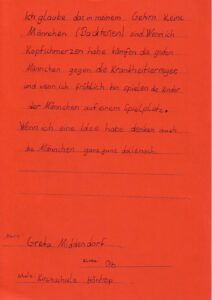 Ich glaube das in meinem Gehrn kleine
Männchen (Ducktoren) sind. Wenn ich
Kopfschmerzen habe kämpfen die guten
Männchen gegen die Krankheitserreger
und wenn ich fröhlich bin spielen die Kinder
der Männchen auf einem Spielplatz.
Wenn ich eine Idee habe denken auch
die Männchen ganz ganz
Name: Greta Middendorf
Klasse:
Schule: Kirchschule Höntrop